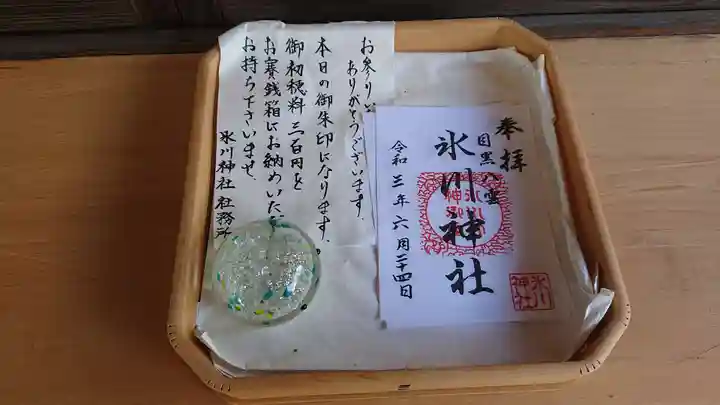 奉拝
目黒八雲
氷川神社
令和三年六月二十四日
氷川
神社
お参り
ありがとうございます。
本日の御朱印になります。
御初穂料三百円を
お賽銭箱にお納めいただ
お持ち下さいませ。
氷川神社社務所